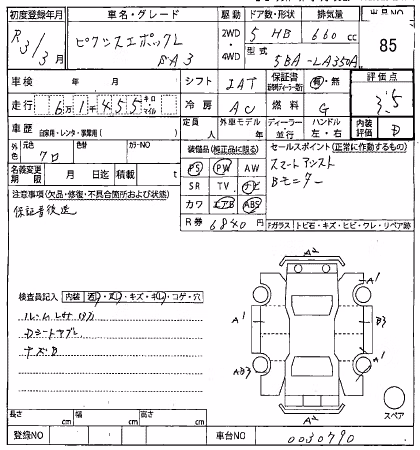 初度登録年月 車名・グレード 駆動 ドア数・形状 排気量 出品NO
R3/3月 ピクシスエポックL SA3 2WD・4WD 5 HB 660cc 85
型式 5BA-LA350A
車検 年 月 シフト IAT 保証書 有・無 評価点
走行 6万1千455キロ・マイル 冷房 AC 燃料 G 3.5
車歴 自家用・レンタ・事業用( ) 定員 外車モデル 年 ディーラー・並行 ハンドル 左・右 内装評価 D
色 元色 クロ 色替 カラーNO
装備品(純正品に限る)
PS PW AW
SR TV ナビ
カワ エアB ABS
R券 6840円
セールスポイント(正常に作動するもの)
スマートアシスト
Bモニター
名義変更期限 月 日迄 積載 t
注意事項(欠品・修復・不具合箇所および状態)
保証書後送
Fガラス トビ石・キズ・ヒビ・ワレ・リペア跡
検査員記入 内装 キズ・コゲ・穴
ナズB
A2
A1
A1
A1
B3
A1
A2
スペア
長さ cm 幅 cm 高さ cm
登録NO 車台NO 0030790